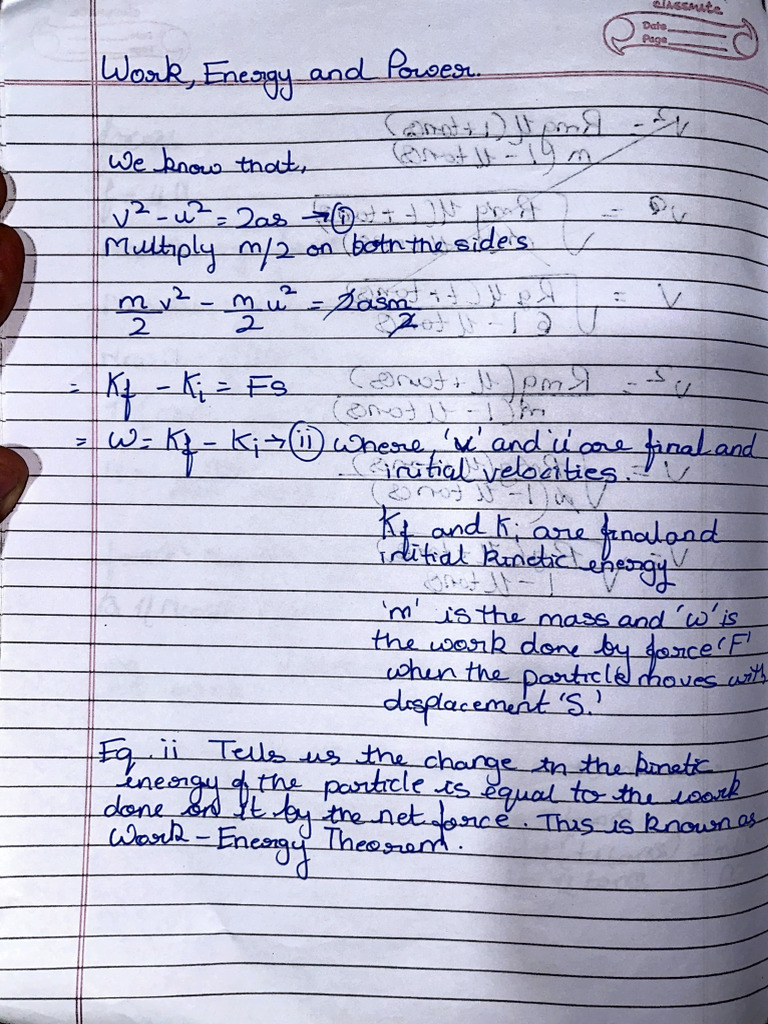 classmate
Date
Page
Work, Energy and Power.
We know that,
v² - u² = 2as → (i)
Multiply m/2 on both the sides
m/2 v² - m/2 u² = 2asm/2
= Kf - Ki = Fs
= W = Kf - Ki → (ii) where, 'v' and 'u' are final and
initial velocities.
Kf and Ki are final and
initial kinetic energy
'm' is the mass and 'w' is
the work done by force 'F'
when the particle moves with
displacement 'S.'
Eq. ii Tells us the change in the kinetic
energy of the particle is equal to the work
done on it by the net force. This is known as
Work - Energy Theorem.